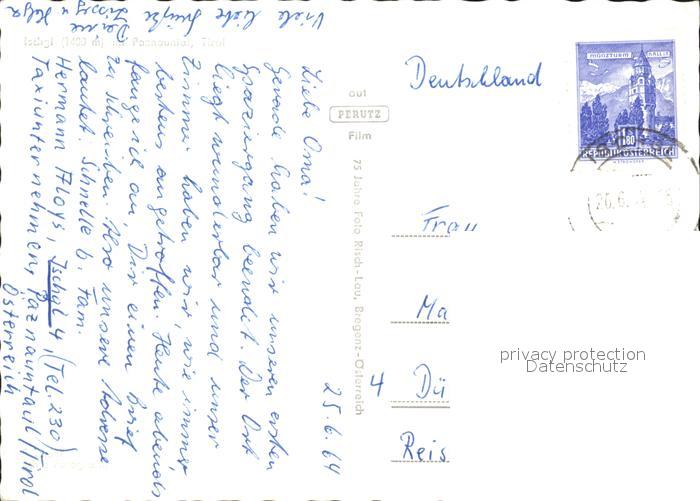 Ischgl (1400 m) im Paznauntal, Tirol
25.6.64
Liebe Oma!
Gerade haben wir unseren ersten
Spaziergang beendet. Der Ort
liegt wunderbar und unser
Zimmer haben wir, wie immer
bestens angetroffen. Heute abends
fange ich an, Dir einen Brief
zu schreiben. Also unsere Adresse
lautet: Schnelle b. Fam.
Hermann Aloys, Ischgl 4, (Tel. 230)
Taxiunternehmen, Paznauntal/Tirol
Österreich
Viele liebe Grüße
Deine
und Helga
auf
PERUTZ
Film
75 Jahre Foto Risch-Lau, Bregenz-Österreich
Deutschland
MÜNZTURM HALL i.T.
1.80
REPUBLIK ÖSTERREICH
Frau
Ma
4 Dü
Reis
privacy protection
Datenschutz